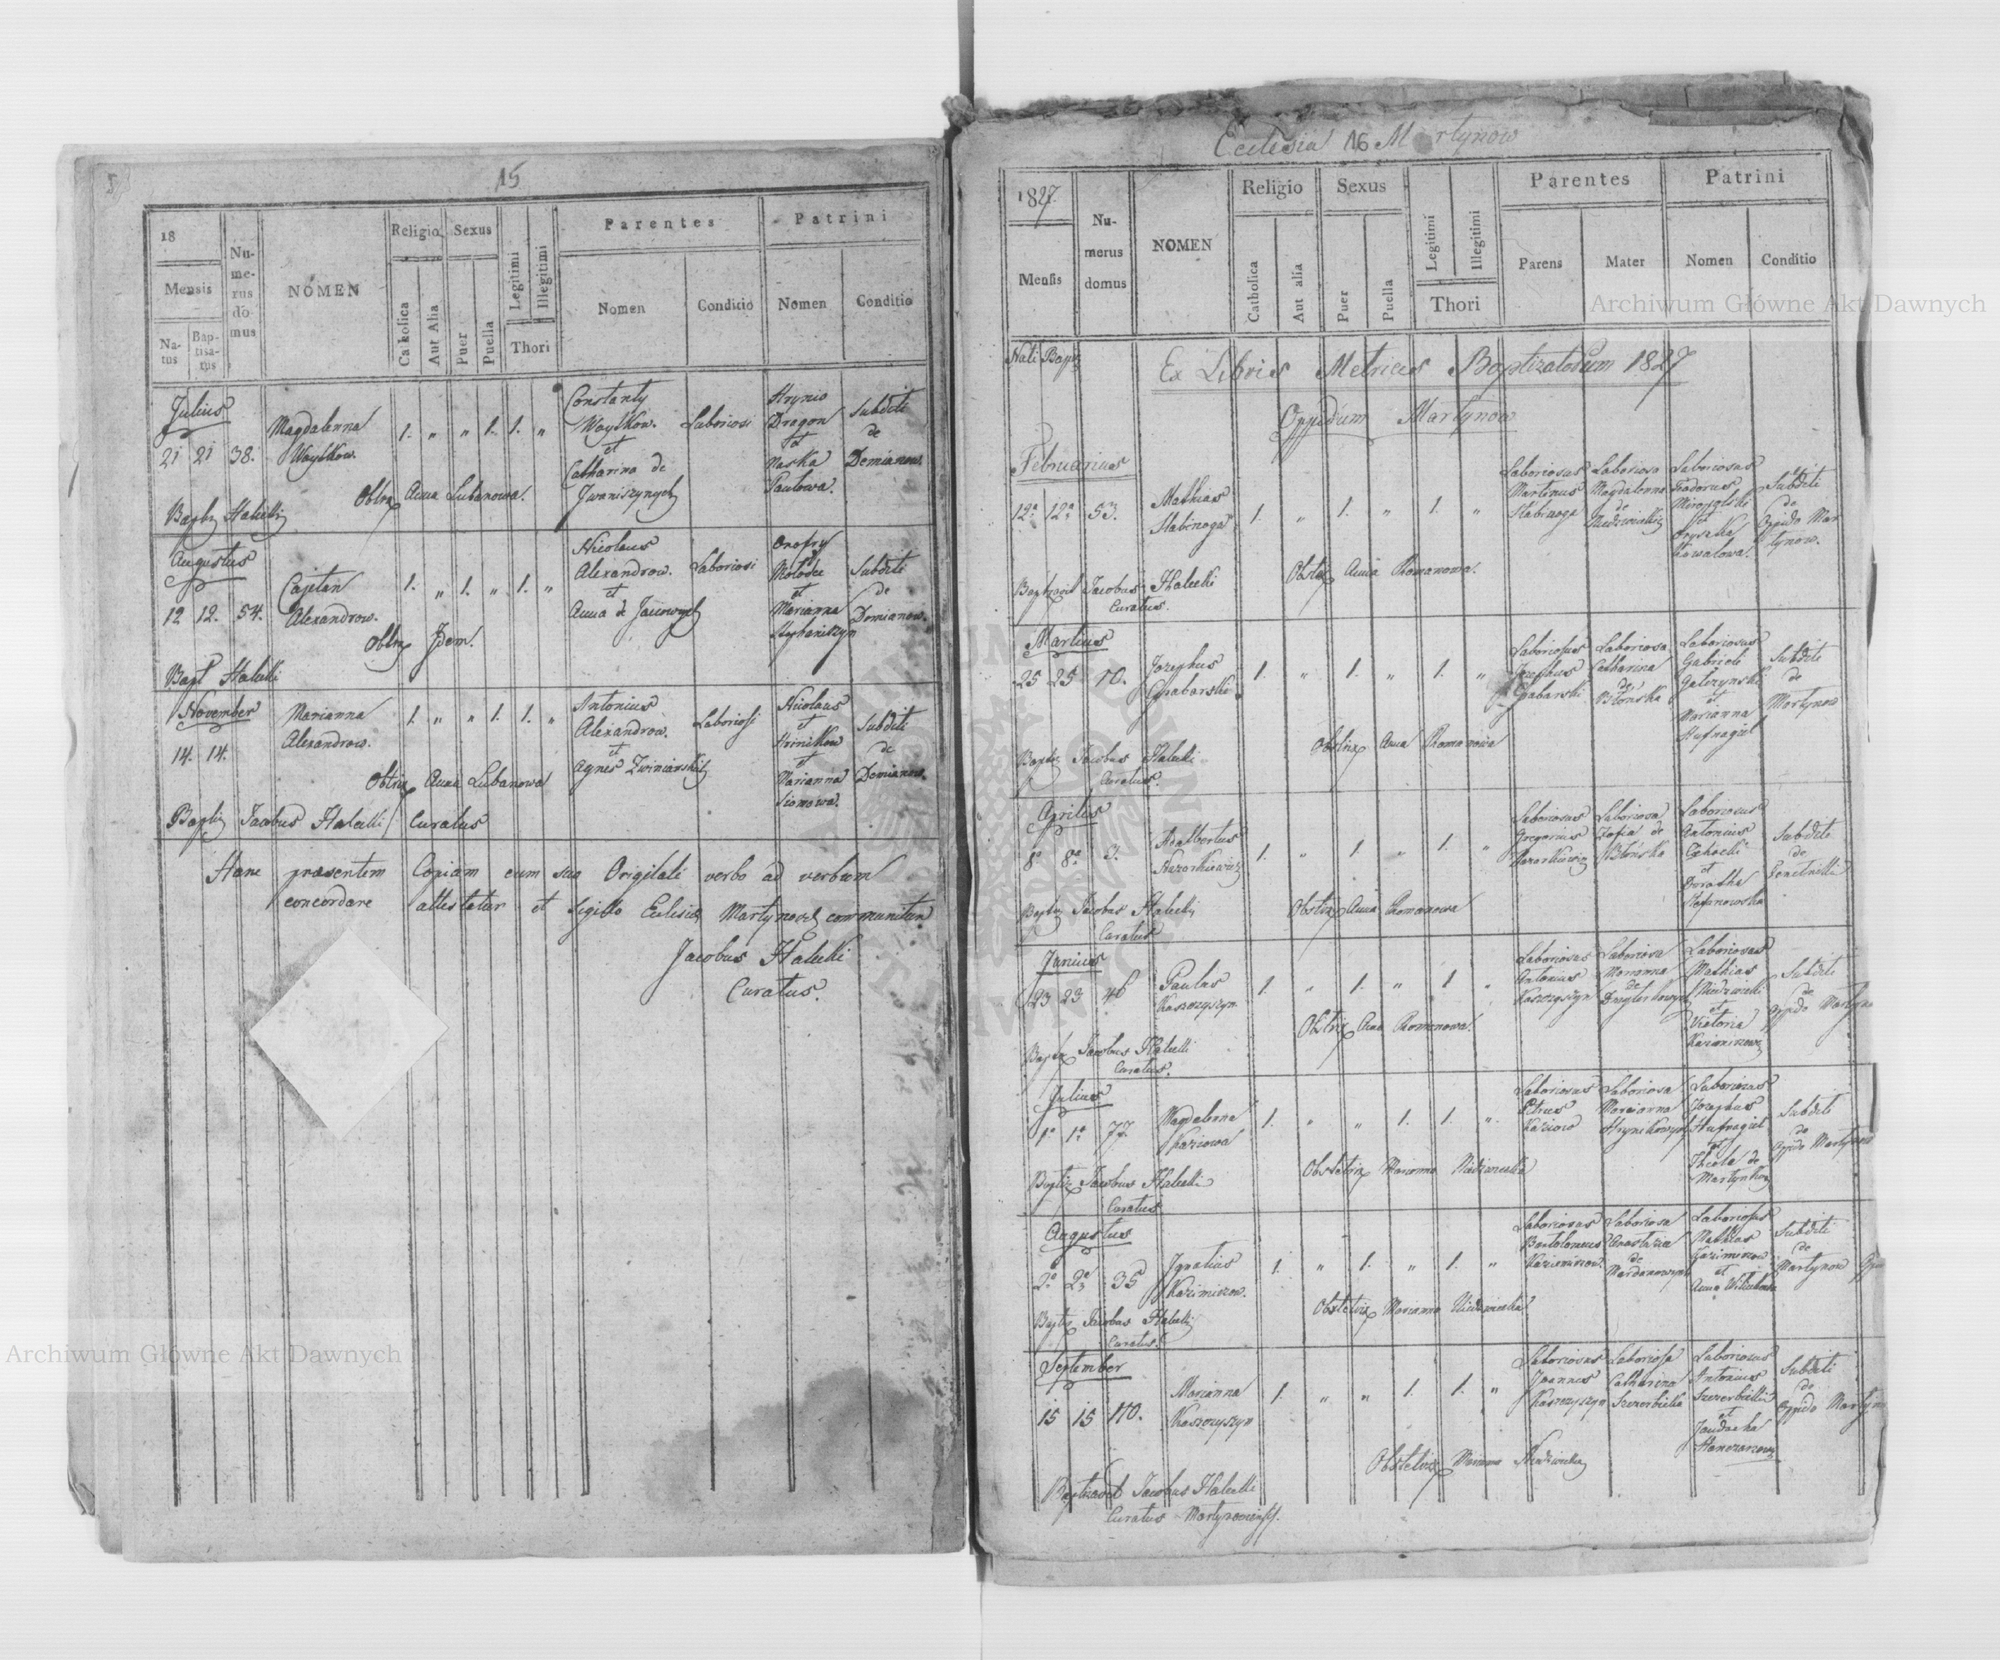 15
18
Mensis
Natus
Baptisatus
Numerus domus
NOMEN
Religio
Catholica
Aut Alia
Sexus
Puer
Puella
Legitimi
Illegitimi
Thori
Parentes
Nomen
Conditio
Patrini
Nomen
Conditio
Julius
21 21 38.
Magdalenna
Woytkow.
1. „ „ 1. 1. „
Constanty
Woytkow.
et
Catharina de
Laboriosi
Hrynio
Dragon
et
Naska
Pawlowa.
Subditi
de
Demianow.
Obtrx Anna Lubanowa.
Bapt. Halecki
Augustus
12 12. 54.
Cajetan
Alexandrow.
1. „ 1. „ 1. „
Nicolaus
Alexandrow.
et
Anna de
Laboriosi
Onofry
et
Marianna
Subditi
de
Demianow.
Obtrx Idem.
Bapt Halecki
November
14. 14.
Marianna
Alexandrow.
1. „ „ 1. 1. „
Antonius
Alexandrow.
et
Agnes
Laboriosi
Nicolaus
et
Marianna
Subditi
de
Demianow.
Obtrix Anna Lubanowa
Bapt. Jacobus Halecki Curatus
Hanc praesentem Copiam cum suo Origilali verbo ad verbum
concordare attestatur et Sigillo Eclesiæ
Jacobus Halecki
Curatus.
Ecclesia 16 Martynow
1827.
Mensis
Numerus domus
NOMEN
Religio
Catholica
Aut alia
Sexus
Puer
Puella
Legitimi
Illegitimi
Thori
Parentes
Parens
Mater
Patrini
Nomen
Conditio
Nati Bapt
Ex Libris Metrices Baptizatorum 1827
Oppidum Martynow
Februarius
12a 12a 53.
Mathias
1. „ 1. „ 1. „
Laboriosus
Martinus
Laboriosa
Magdalenna
de
Laboriosus
et
Subditi
de
Oppido Mar
tynow.
Obstrx Anna Romanowa.
Baptizavit Jacobus Halecki
Curatus.
Martius
25 25 70.
Josephus
Grabarski
1. „ 1. „ 1. „
Laboriosus
Josephus
Grabarski
Laboriosa
Catharina
de
Laboriosus
Gabrieli
Galczynski
et
Marianna
Hufragiel
Subditi
de
Martynow
Obstrix Anna Romanowa
Baptiz Jacobus Halecki
Curatus.
Aprilis
8a 8a 3.
Adalbertus
1. „ 1. „ 1. „
Laboriosus
Gregorius
Laboriosa
Zofia de
Laboriosus
Antonius
et
Dorotha
Stefanowska
Subditi
de
Obstrix Anna Romanowa
Baptiz Jacobus Halecki
Curatus
Junius
23 23 46
Paulus
Kaszczyszyn
1. „ 1. „ 1 „
Laboriosus
Antonius
Kaszczyszyn
Laboriosa
Marianna
de
Laboriosus
Mathias
Niedzwiecki
et
Victoria
Subditi
de
Oppido Martyno
Obstrix Anna Romanowa.
Baptiz Jacobus Halecki
Curatus.
Julius
1a 1a 77.
Magdalenna
Kaziowa
1. „ „ 1. 1. „
Laboriosus
Petrus
Kaziow
Laboriosa
Marianna
Laboriosus
Josephus
Hufragiel
et
Thecla de
Subditi
de
Oppido Martynow
Obstetrix Marianna Niedzwiecka
Baptiz Jacobus Halecki
Curatus
Augustus
2a 2a 35
Ignatius
Kazimirow.
1. „ 1. „ 1. „
Laboriosus
Bartolomeus
Kazimirow.
Laboriosa
Anastazia
de
Laboriosus
Mathias
Kazimirow
et
Anna
Subditi
de
Martynow
Obstetrix Marianna Niedzwiecka
Baptiz Jacobus Halecki
Curatus.
September
15 15 110.
Marianna
Kaszczyszyn
1. „ „ 1. 1. „
Laboriosus
Joannes
Kaszczyszyn
Laboriosa
Catharina
Szczerbicka
Laboriosus
Antonius
Szczerbicki
et
Subditi
de
Oppido Martyn
Obstetrix Marianna Niedzwiecka
Baptizavit Jacobus Halecki
Curatus
Archiwum Główne Akt Dawnych
Archiwum Główne Akt Dawnych